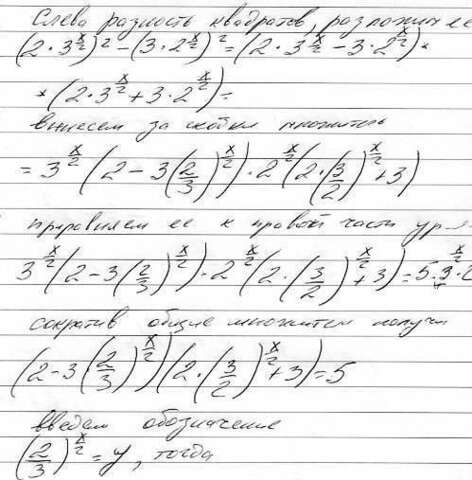 Слева разность квадратов, разложим ее
(2·3^(x/2))² − (3·2^(x/2))² = (2·3^(x/2) − 3·2^(x/2)) *
* (2·3^(x/2) + 3·2^(x/2)) =
вынесем за скобки множитель
= 3^(x/2) (2 − 3(2/3)^(x/2)) · 2^(x/2) (2·(3/2)^(x/2) + 3)
приравняем ее к правой части ур
3^(x/2) (2 − 3(2/3)^(x/2)) · 2^(x/2) (2·(3/2)^(x/2) + 3) = 5·3^(x/2)·2
сократив общие множители получи
(2 − 3(2/3)^(x/2)) (2·(3/2)^(x/2) + 3) = 5
введем обозначение
(2/3)^(x/2) = y, тогда